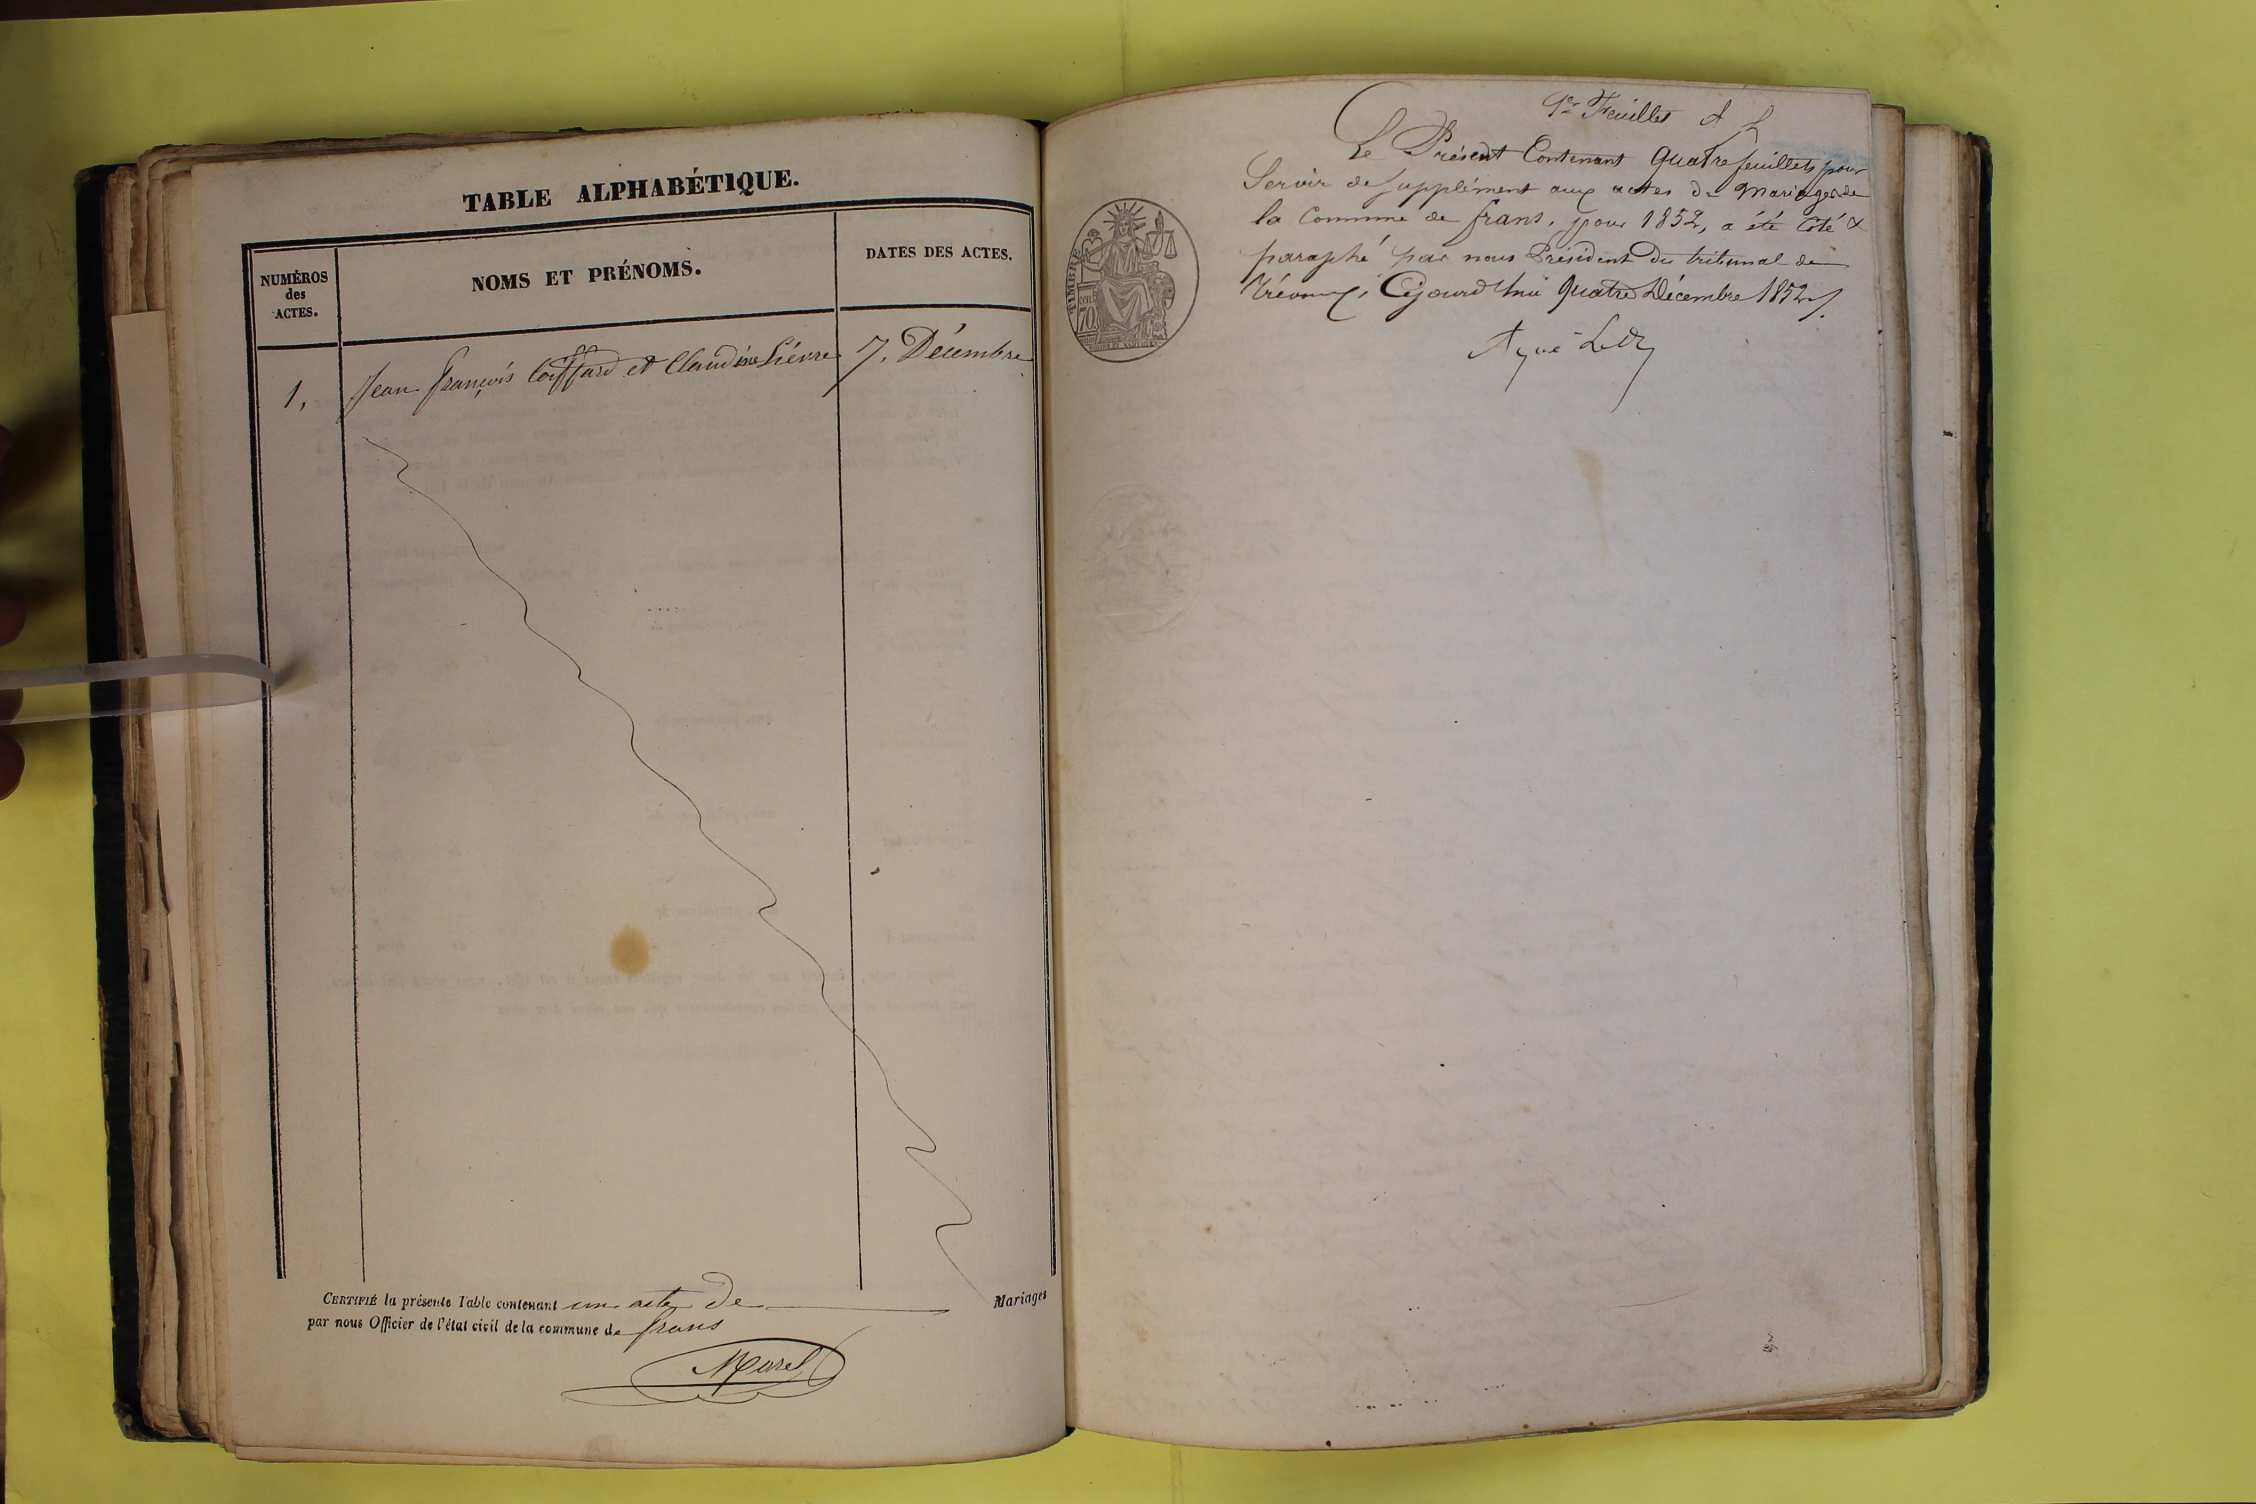 TABLE ALPHABÉTIQUE.
NUMÉROS
des
ACTES.
NOMS ET PRÉNOMS.
DATES DES ACTES.
1, Jean François Coiffard et Claudine Lièvre 7, Décembre
CERTIFIÉ la présente Table contenant un acte De Mariages
par nous Officier de l'état civil de la commune de frans
Morel
1er Feuillet
Le Présent Contenant quatre feuillets pour
Servir de supplément aux actes de Mariages de
la Commune de frans, pour 1852, a été Coté &
paraphé par nous Président du tribunal de
Trévoux, Cejourd'hui quatre Décembre 1852.
TIMBRE
70